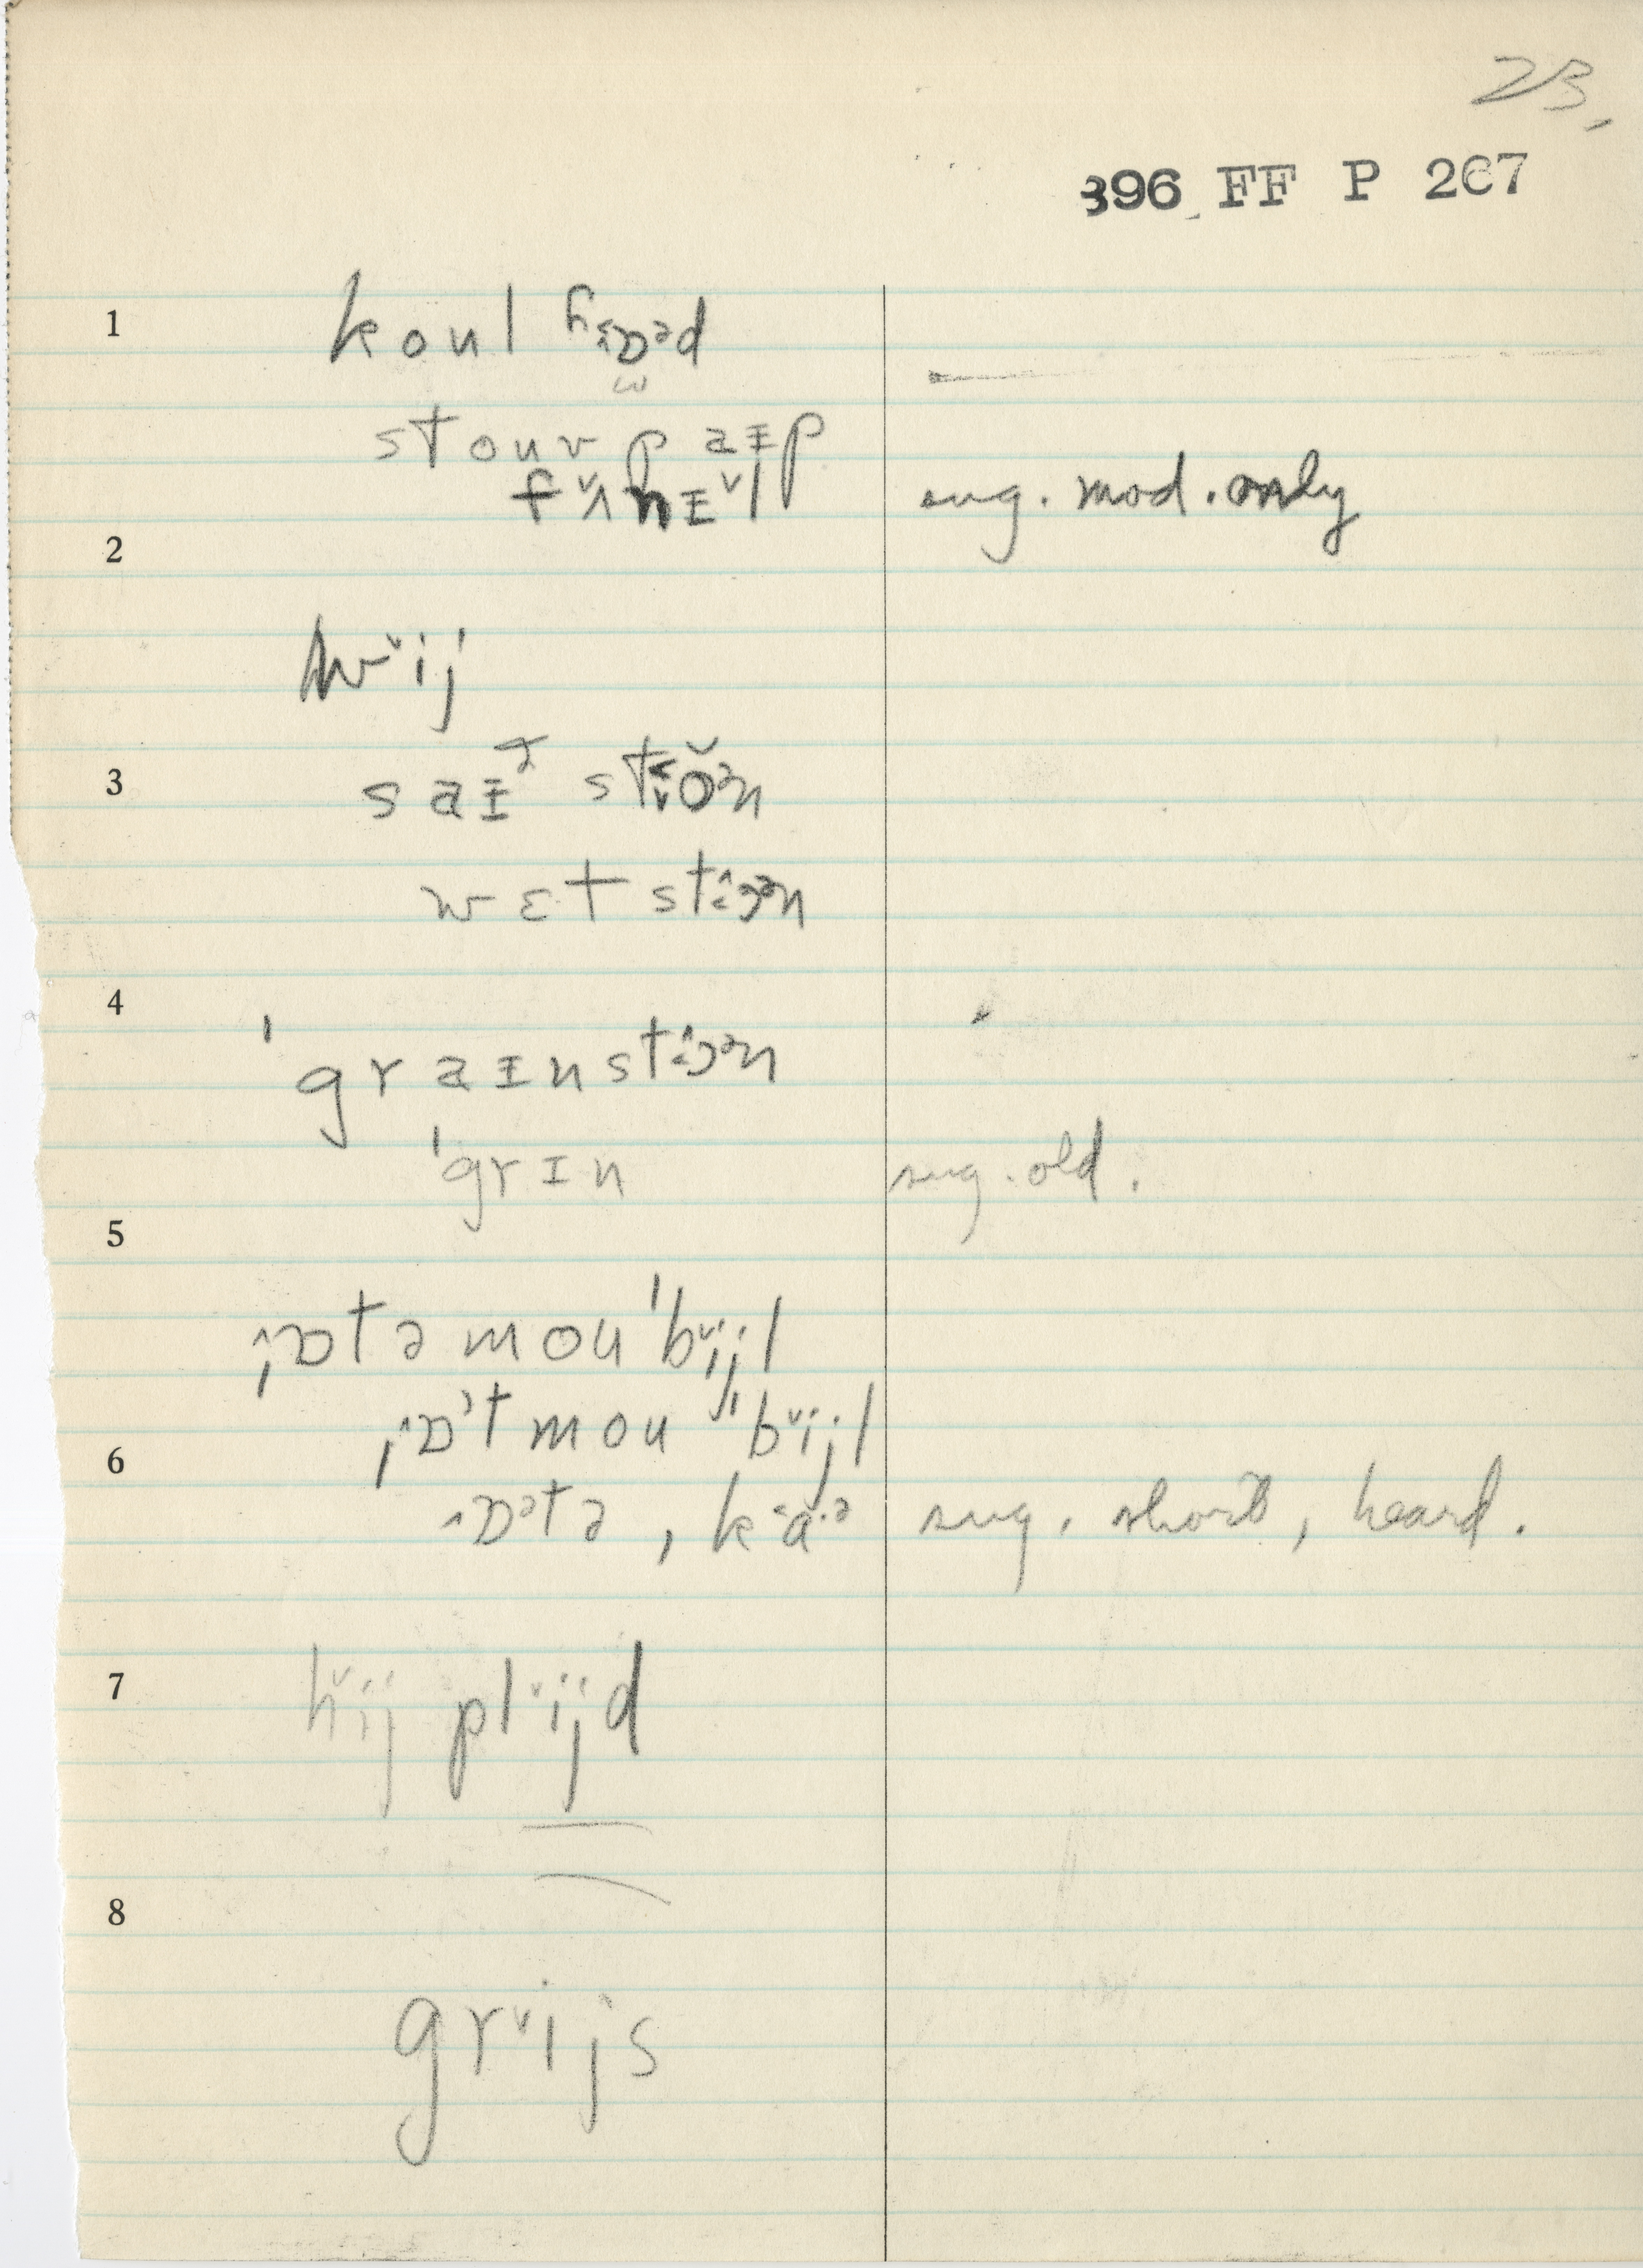 23,
396 FF P 267
1 koul hɒᵊd
stouv paɪp
fʌnɪl sug. mod. only
2
hwij
3 saɪð stoən
wɛt stɔən
4
ˈgraɪnstɔən
ˈgrɪn sug. old.
5
ˌɒtəmouˈbijl
ˌɒtmouˈbijl
6
ɒtə, kɑ·ə sug. short, heard.
7 hij plijd
8
grijs